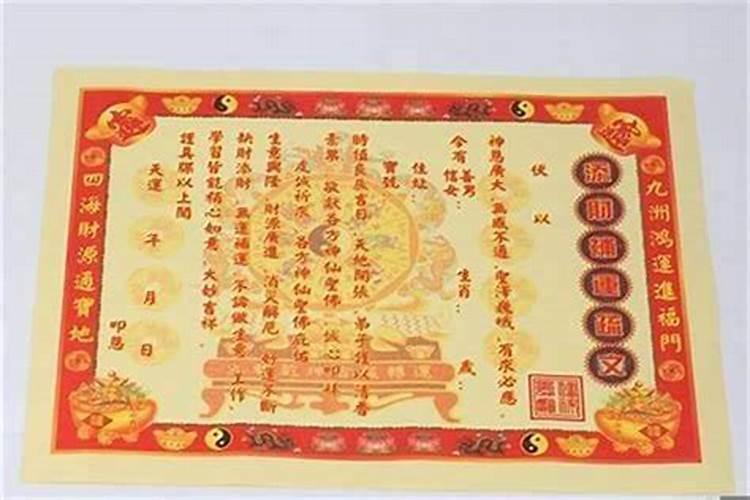 九洲鴻運進福門
添財補運疏文
伏以
神恩廣大 無感不通 聖澤巍峨 有求必應
今有善男信女: 生肖: 歲:
住址:
寶號
時值良辰吉日 天地開張 弟子謹以清香
素果 敬献各方神仙聖佛 誠心叩拜
虔誠祈求 各方神仙聖佛庇佑
生意興隆 財源廣進 消災解厄 好運不斷
缺財添財 無運補運 不論做生意、工作、
學習皆能稱心如意、大妙吉祥.
謹具疏以上聞
天運 年 月 日 叩恩
四海財源通寶地